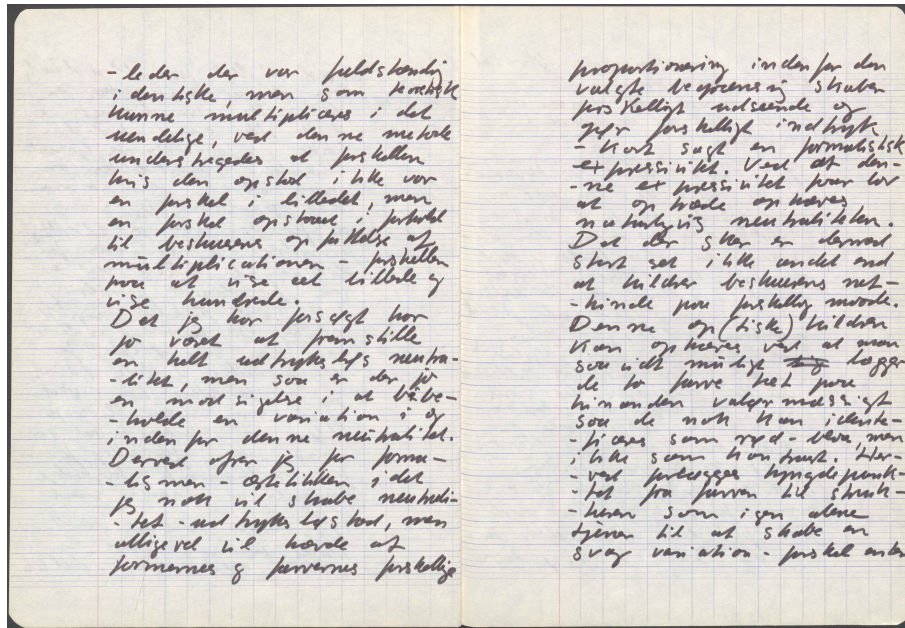 -leder der var fuldstændig
identiske, men som teoretisk
kunne multipliceres i det
uendelige, ved denne metode
understregedes at forskellen
hvis den opstod ikke var
en forskel i billedet, men
en forskel opstaaet i forhold
til beskuerens opfattelse af
multiplicationen - forskellen
paa at vise eet billede og
vise hundrede.
Det jeg har forsøgt har
jo været at fremstille
en helt udtryksløs neutra-
-litet, men saa er der jo
en modsigelse i at bibe-
-holde en variation i og
inden for denne neutralitet.
Derved ofrer jeg for forma-
-lismen - æstetikken idet
jeg nok vil skabe neutrali-
-tet - udtryksløshed, men
alligevel vil hævde at
formernes og farvernes forskellige
proportionering inden for den
valgte begrænsning skaber
forskelligt udseende og
gør forskelligt indtryk
- Kort sagt en formalistisk
expressivitet. Ved at den-
-ne expressivitet faar lov
at optræde ophæves
naturligvis neutraliteten.
Det der sker er derved
stort set ikke andet end
at kildrer beskuerens net-
-hinde paa forskellig maade.
Denne op(tiske) kildren
kan ophæves ved at man
saa vidt muligt lægger
de to farve tæt paa
hinanden valørmæssigt
saa de nok kan identi-
-ficeres som rød - blaa, men
ikke som kontrast. Her-
-ved forlægges tyngdepunk-
-tet fra farven til struk-
-turen som igen alene
tjener til at skabe en
svag variation - forskel enten